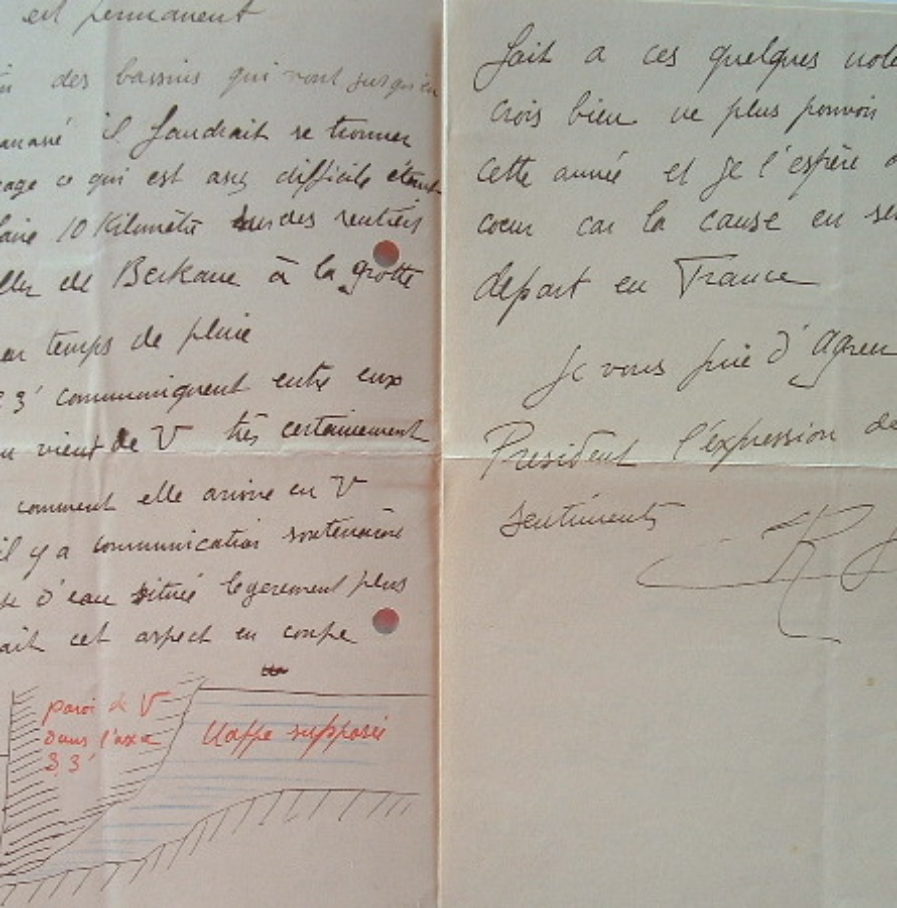 est permanent
des bassins qui vont jusqu'en
il faudrait se trouver
ce qui est assez difficile étant
faire 10 Kilométre sur des sentiers
de Berkane à la grotte
en temps de pluie
3' communiquent entre eux
vient de V très certainement
comment elle arrive en V
il y a communication souterraine
d'eau située legerement plus
cet aspect en coupe
paroi de V
dans l'axe
3 3'
Nappe supposée
fait a ces quelques
crois bien ne plus pouvoir
cette année et je l'espère
coeur car la cause en
depart en France
Je vous prie d'agreer
President l'expression de
sentiments